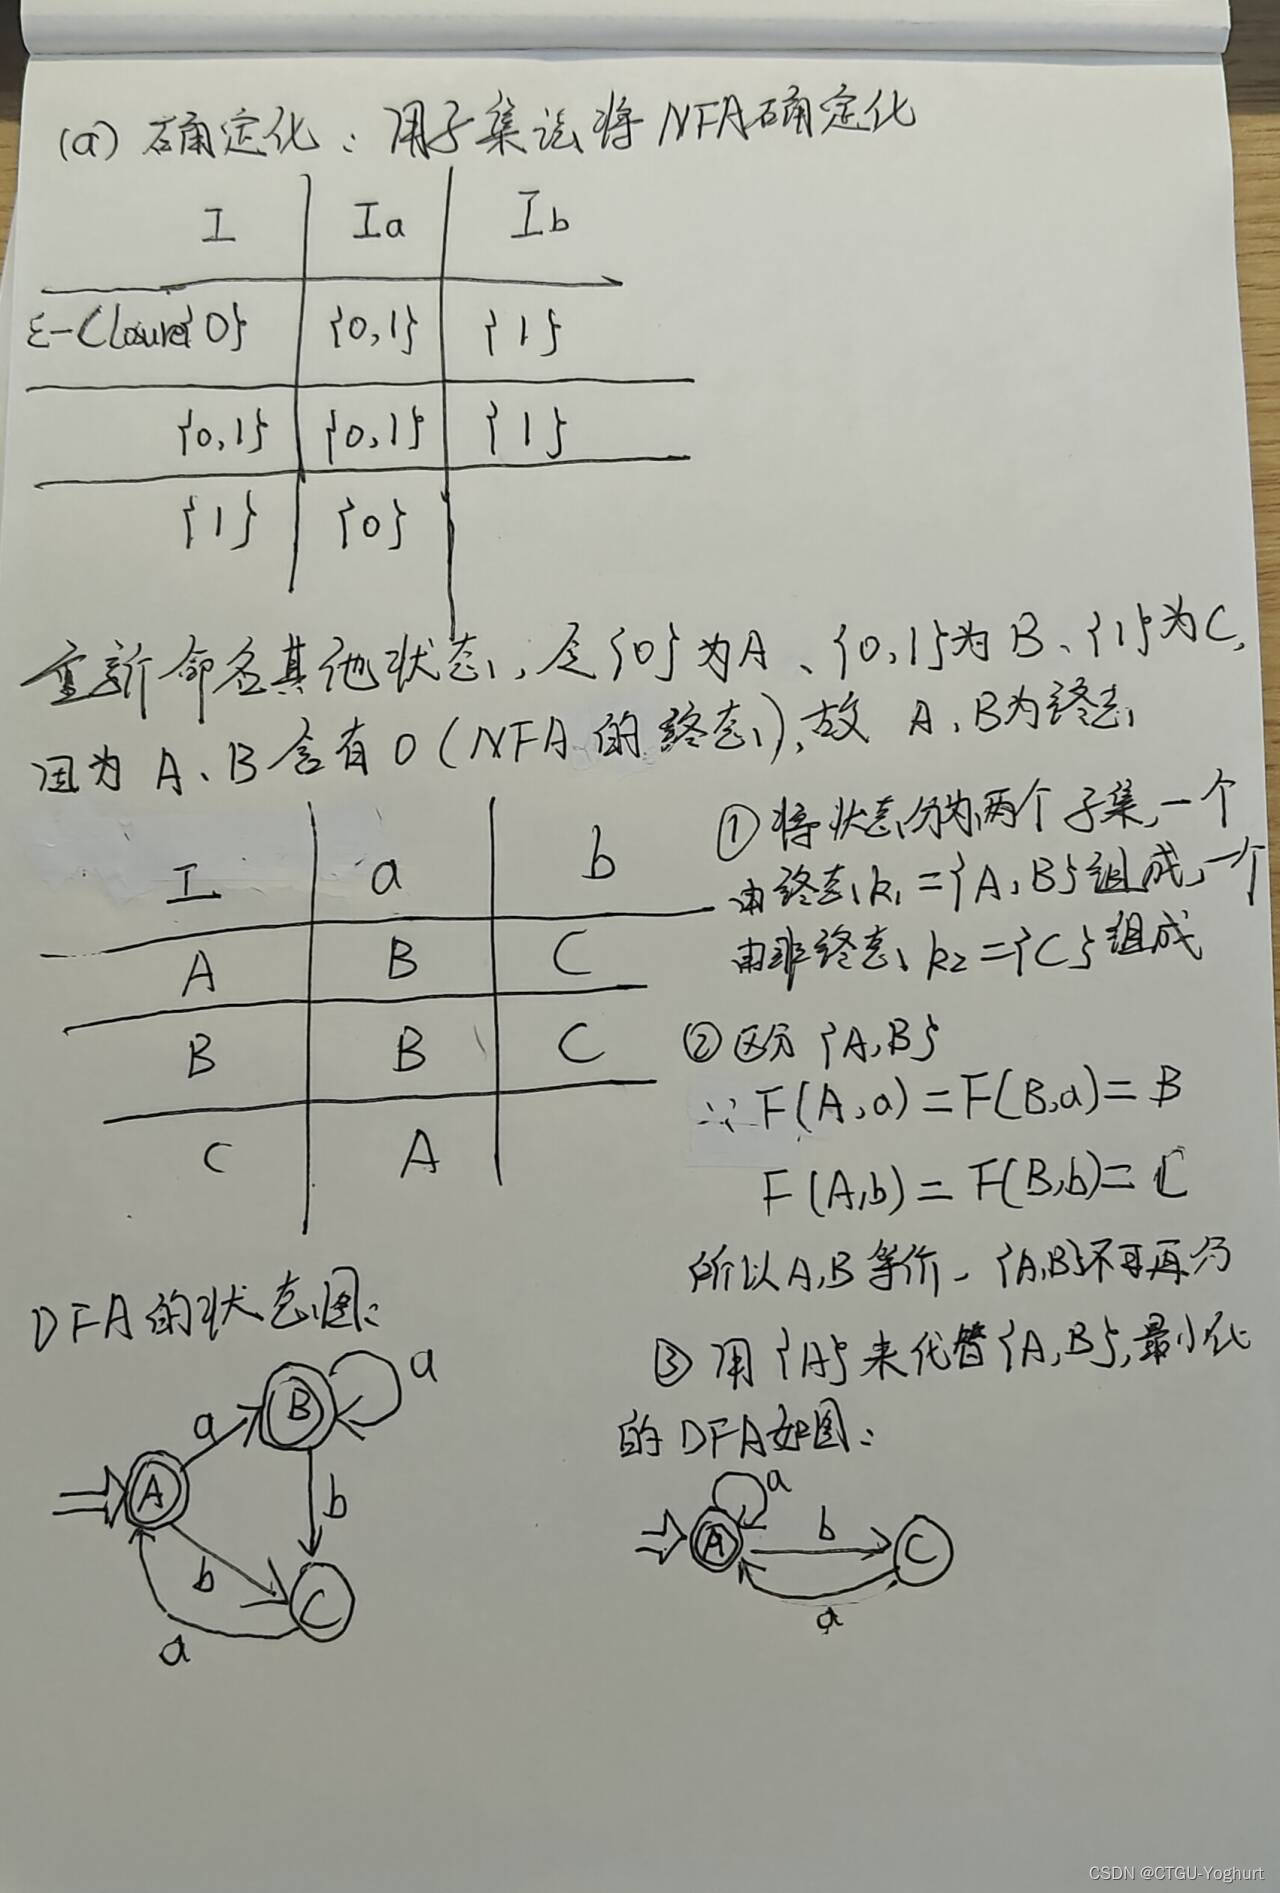 (a) 确定化：用子集法将NFA确定化
I Ia Ib
ε-Closure{0} {0,1} {1}
{0,1} {0,1} {1}
{1} {0}
重新命名其他状态，令{0}为A、{0,1}为B、{1}为C，
因为A、B含有0（NFA的终态），故A、B为终态
I a b
A B C
B B C
C A
①将状态分为两个子集，一个
由终态k₁={A,B}组成，一个
由非终态k₂={C}组成
②区分{A,B}
∵F(A,a)=F(B,a)=B
F(A,b)=F(B,b)=C
所以A,B等价，{A,B}不可再分
③用{A}来代替{A,B}，最小化
的DFA如图：
DFA的状态图：
a
B
a
A
b
b
C
a
a
A
b
C
a
CSDN @CTGU-Yoghurt